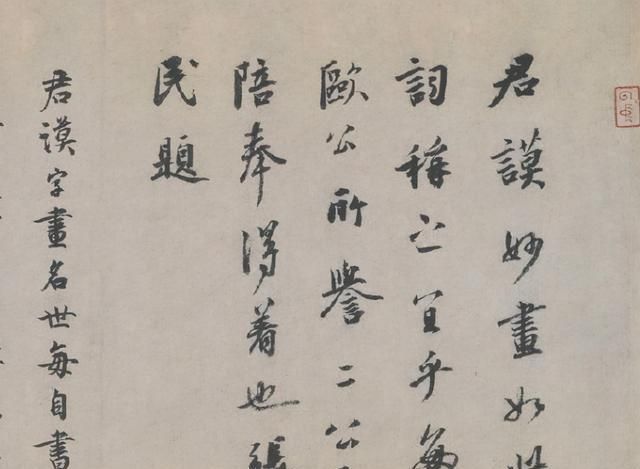 君謨妙畫如
詞稱之宜乎為
歐公所譽二公
陪奉得著也張
民題
君謨字畫名世每自書